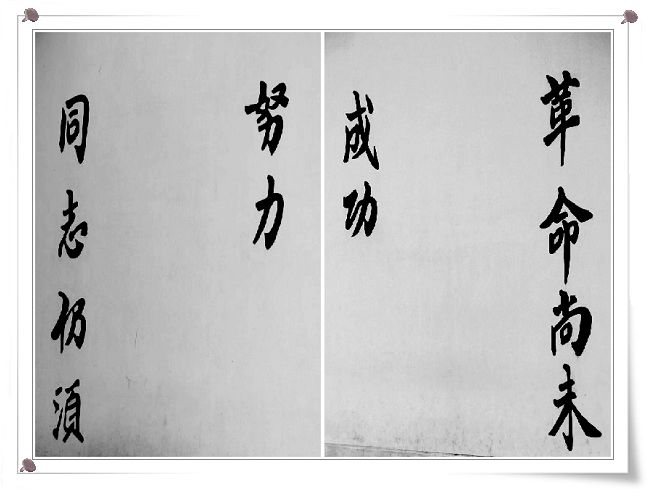 革命尚未
成功
同志仍須
努力